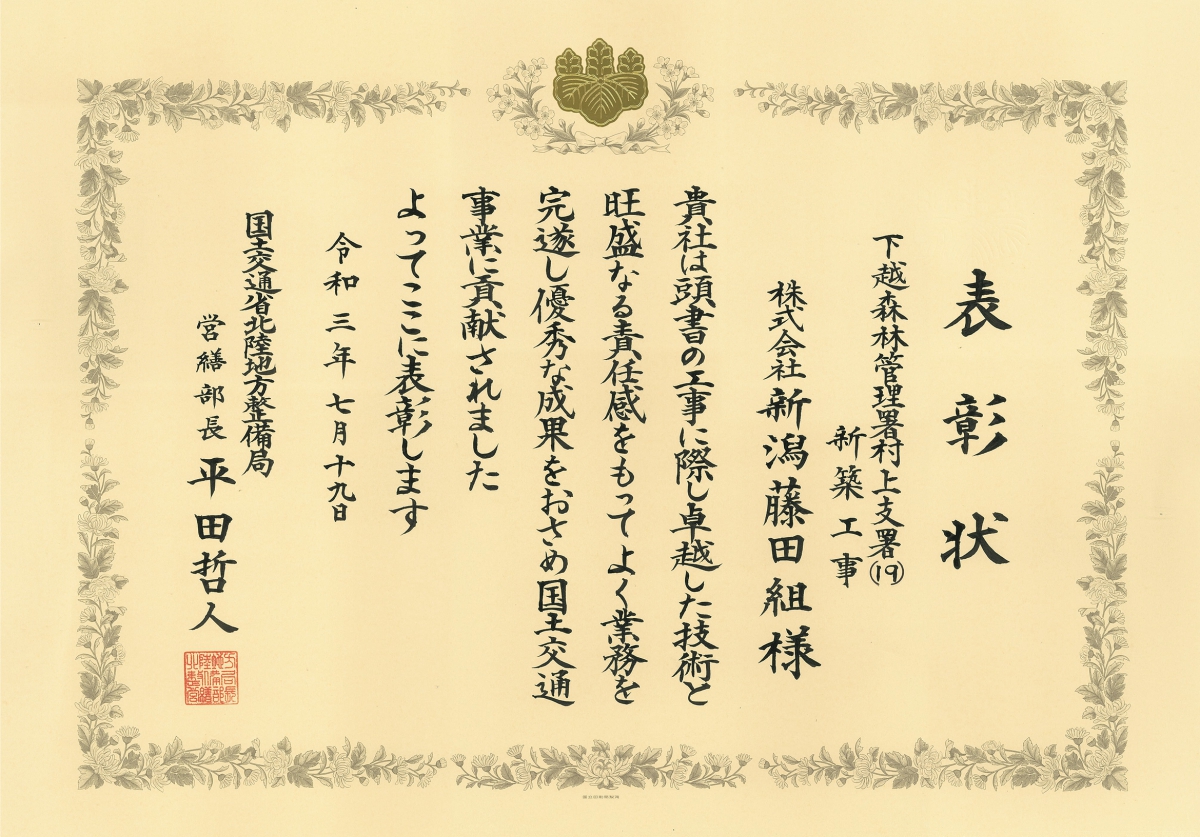 表彰状
下越森林管理署村上支署(19)
新築工事
株式会社新潟藤田組様
貴社は頭書の工事に際し卓越した技術と
旺盛なる責任感をもってよく業務を
完遂し優秀な成果をおさめ国土交通
事業に貢献されました
よってここに表彰します
令和三年七月十九日
国土交通省北陸地方整備局
営繕部長 平田哲人